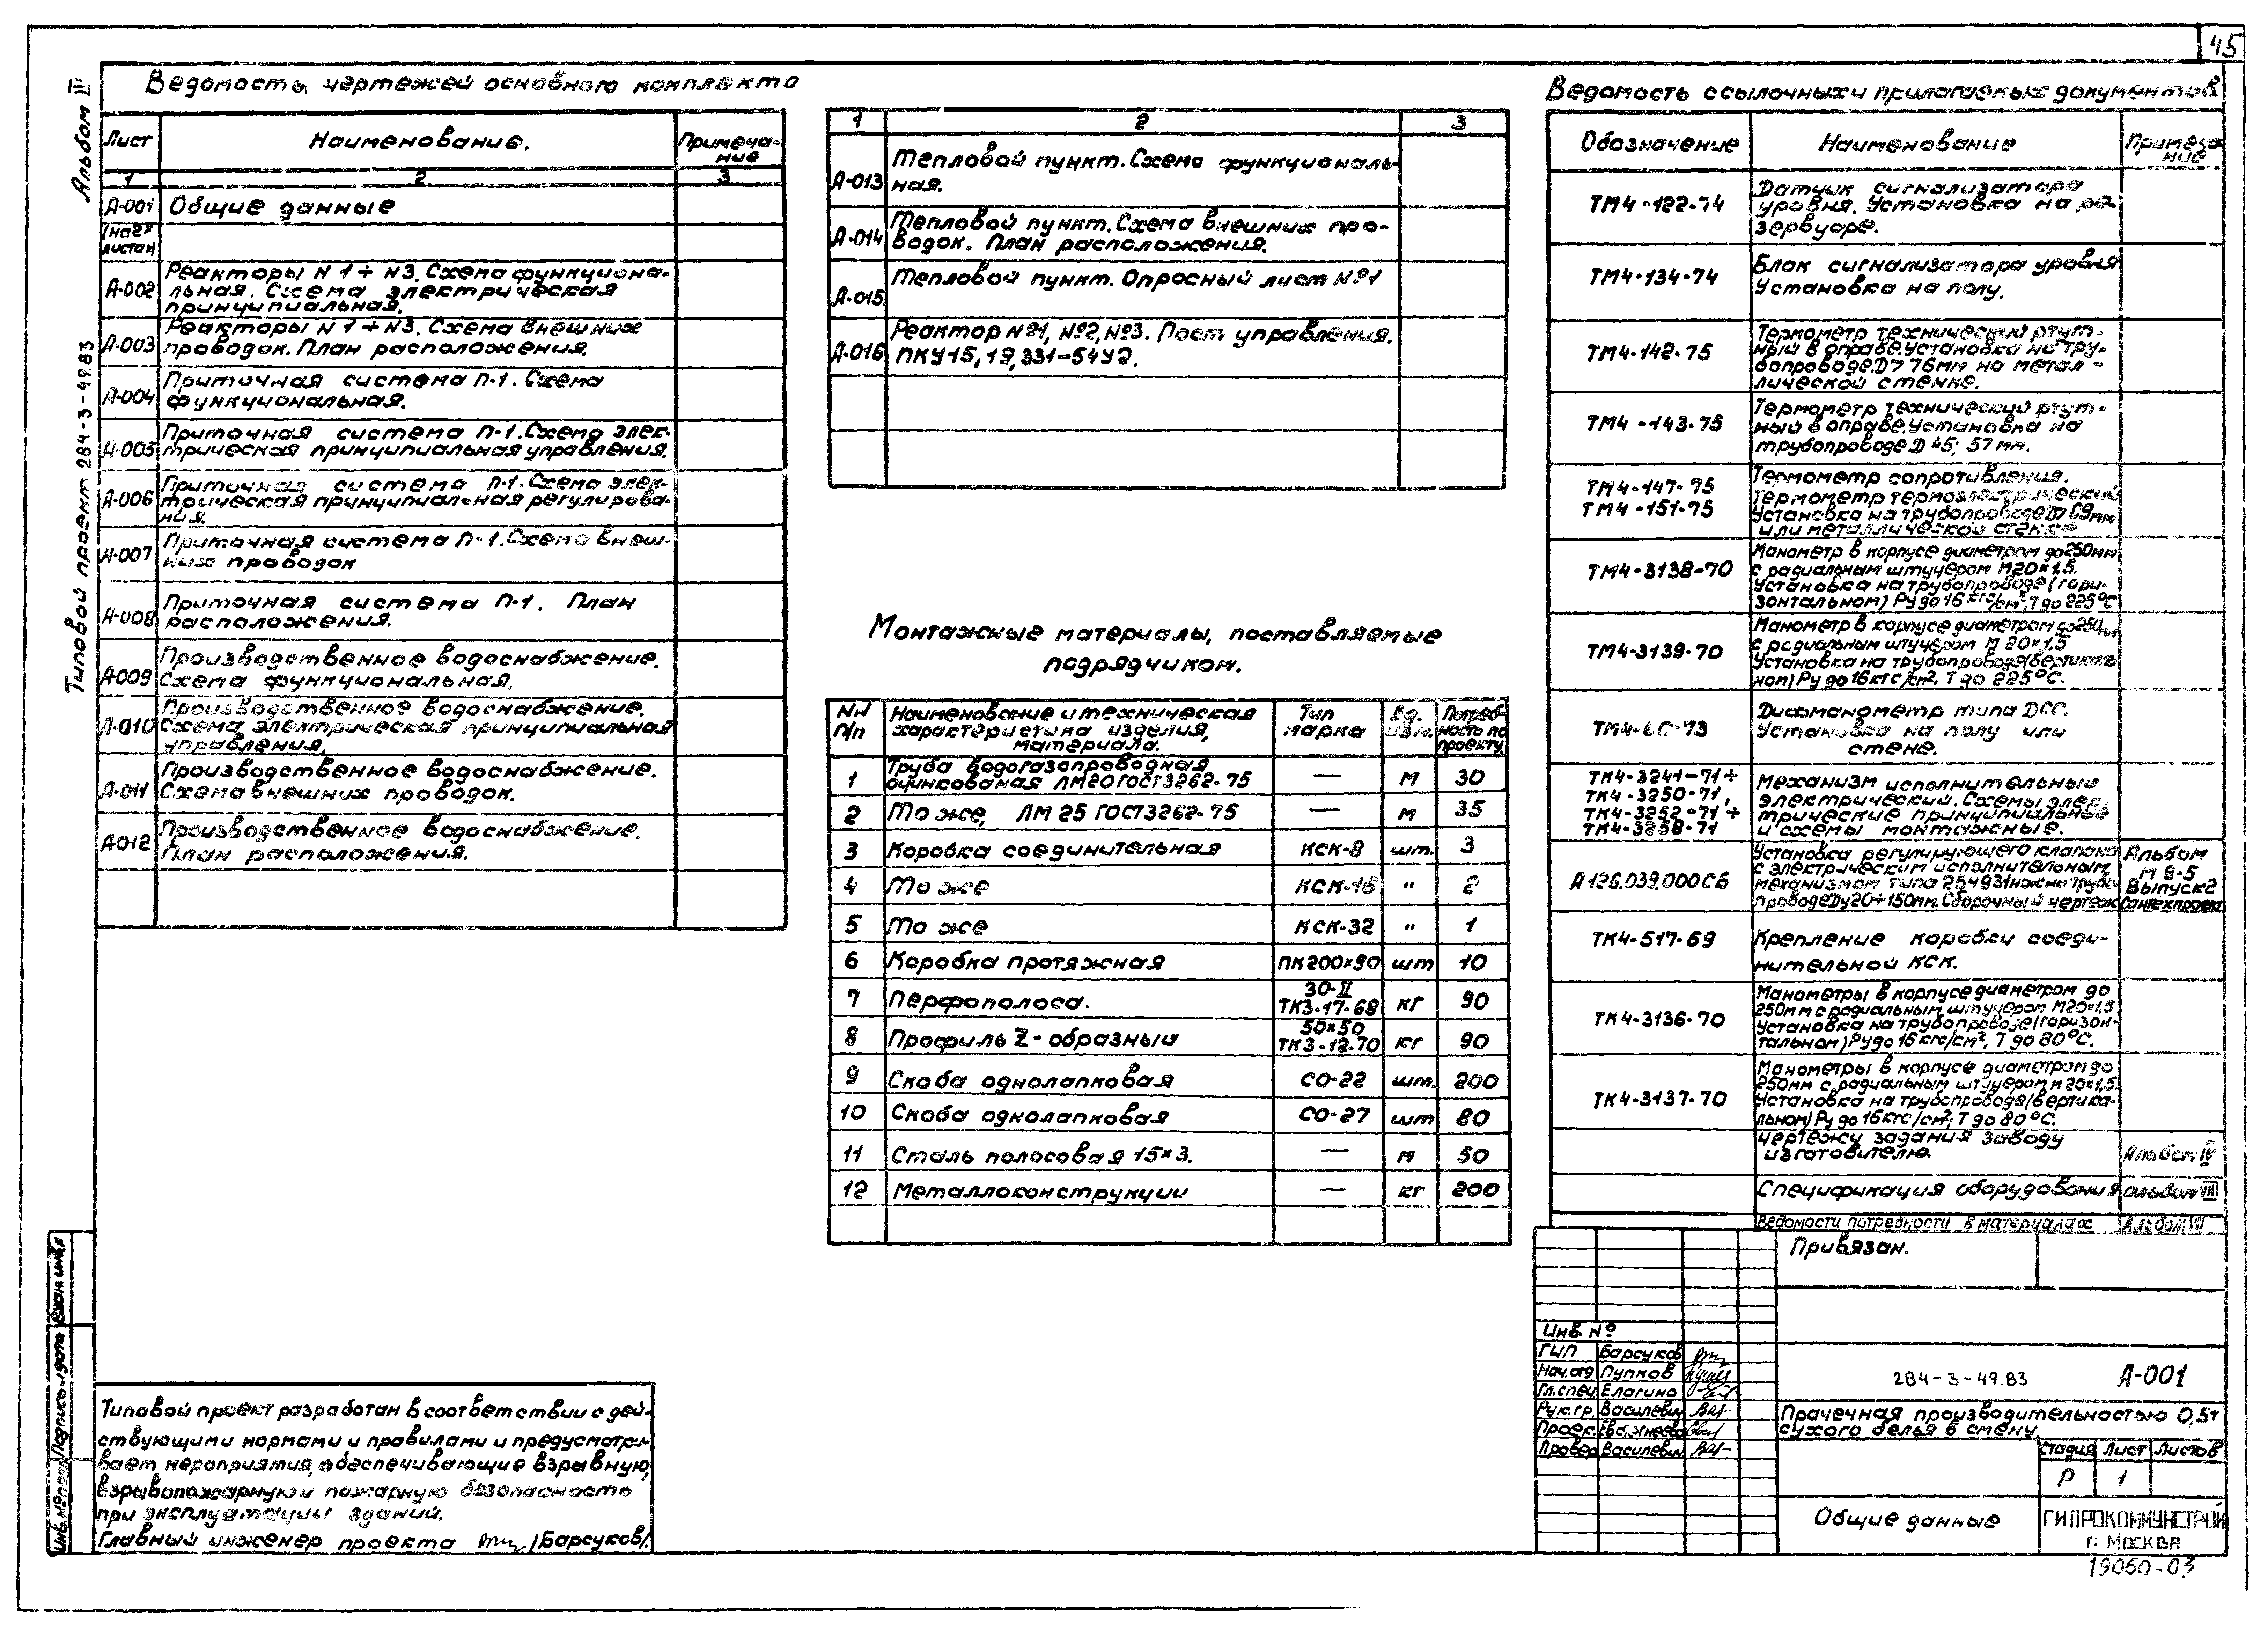 45
Альбом III
Типовой проект 284-3-49.83
Ведомость чертежей основного комплекта
Лист Наименование. Примеча-
ние
1 2 3
А-001 Общие данные
(на 2х
листах)
Реакторы N 1÷N3. Схема функциона-
А-002 льная. Схема электрическая
принципиальная.
Реакторы N 1÷N3. Схема внешних
А-003 проводок. План расположения.
Приточная система П-1. Схема
А-004 функциональная.
Приточная система П-1. Схема элек-
А-005 трическая принципиальная управления.
Приточная система П-1. Схема элек-
А-006 трическая принципиальная регулирова-
ния.
Приточная система П-1. Схема внеш-
А-007 них проводок
Приточная система П-1. План
А-008 расположения.
Производственное водоснабжение.
А-009 Схема функциональная.
Производственное водоснабжение.
А-010 Схема электрическая принципиальная
управления.
Производственное водоснабжение.
А-011 Схема внешних проводок.
Производственное водоснабжение.
А-012 План расположения.
1 2 3
Тепловой пункт. Схема функциональ-
А-013 ная.
Тепловой пункт. Схема внешних про-
А-014 водок. План расположения.
Тепловой пункт. Опросный лист №1
А-015
Реактор №1, №2, №3. Пост управления.
А-016 ПКУ15, 19, 331-54У2.
Монтажные материалы, поставляемые
подрядчиком.
NN Наименование и техническая Тип Ед. Потреб-
п/п характеристика изделия, марка изм. ность по
материала. проекту.
Труба водогазопроводная
1 оцинкованая ЛМ20 ГОСТ3262-75 — м 30
2 То же, ЛМ 25 ГОСТ3262-75 — м 35
3 Коробка соединительная КСК-8 шт. 3
4 То же КСК-16 " 2
5 То же КСК-32 " 1
6 Коробка протяжная ПК200×90 шт 10
7 Перфополоса. 30-II ТК3-17-68 кг 90
8 Профиль Z-образный 50×50 ТК3-12-70 кг 90
9 Скоба однолапковая СО-22 шт. 200
10 Скоба однолапковая СО-27 шт 80
11 Сталь полосовая 15×3. — м 50
12 Металлоконструкции — кг 200
Ведомость ссылочных и прилагаемых документов
Обозначение Наименование Примеча-
ние
Датчик сигнализатора
ТМ4-122-74 уровня. Установка на ре-
зервуаре.
Блок сигнализатора уровня
ТМ4-134-74 Установка на полу.
Термометр технический ртут-
ТМ4-142-75 ный в оправе. Установка на тру-
бопроводе D>76мм на метал-
лической стенке.
Термометр технический ртут-
ТМ4-143-75 ный в оправе. Установка на
трубопроводе D 45; 57 мм.
Термометр сопротивления.
ТМ4-147-75 Термометр термоэлектрический
ТМ4-151-75 Установка на трубопроводе D>89мм
или металлической стенке
Манометр в корпусе диаметром до 250мм
ТМ4-3138-70 с радиальным штуцером М20×1,5.
Установка на трубопроводе (гори-
зонтальном) Ру до 16 кгс/см², Т до 225°С
Манометр в корпусе диаметром до 250мм
ТМ4-3139-70 с радиальным штуцером М 20×1,5
Установка на трубопроводе (вертикаль-
ном) Ру до 16кгс/см², Т до 225°С.
Дифманометр типа ДСС.
ТМ4-60-73 Установка на полу или
стене.
ТК4-3241-71÷ Механизм исполнительный
ТК4-3250-71, электрический. Схемы элек-
ТК4-3252-71÷ трические принципиальные
ТК4-3258-71 и схемы монтажные.
Установка регулирующего клапана Альбом
с электрическим исполнительным М 8-5
А 126.039.000СБ механизмом типа 25ч931нж на трубо- Выпуск 2
проводе Dу20÷150мм. Сборочный чертеж Сантехпроект
ТК4-517-69 Крепление коробки соеди-
нительной КСК.
Манометры в корпусе диаметром до
250мм с радиальным штуцером М20×1,5
ТК4-3136-70 Установка на трубопроводе (горизон-
тальном) Ру до 16 кгс/см², Т до 80°С.
Манометры в корпусе диаметром до
250мм с радиальным штуцером М 20×1,5.
ТК4-3137-70 Установка на трубопроводе (вертика-
льном) Ру до 16кгс/см², Т до 80°С.
Чертежи задания заводу
изготовителю. Альбом IV
Спецификация оборудования альбом VIII
Ведомости потребности в материалах Альбом
Привязан.
Инв. №
ГИП Барсуков
Нач.отд Пупков
Гл.спец Елагина
Рук.гр. Василевич
Проер. Евстигнеева
Провер Василевич
284-3-49.83 А-001
Прачечная производительностью 0,5т
сухого белья в смену
Стадия Лист Листов
Р 1
Общие данные
ГИПРОКОММУНСТРОЙ
г. МОСКВА
19060-03
Типовой проект разработан в соответствии с дей-
ствующими нормами и правилами и предусматри-
вает мероприятия, обеспечивающие взрывную,
взрывопожарную и пожарную безопасность
при эксплуатации зданий.
Главный инженер проекта /Барсуков/.
Инв.№подл. Подпись и дата Взам.инв.№